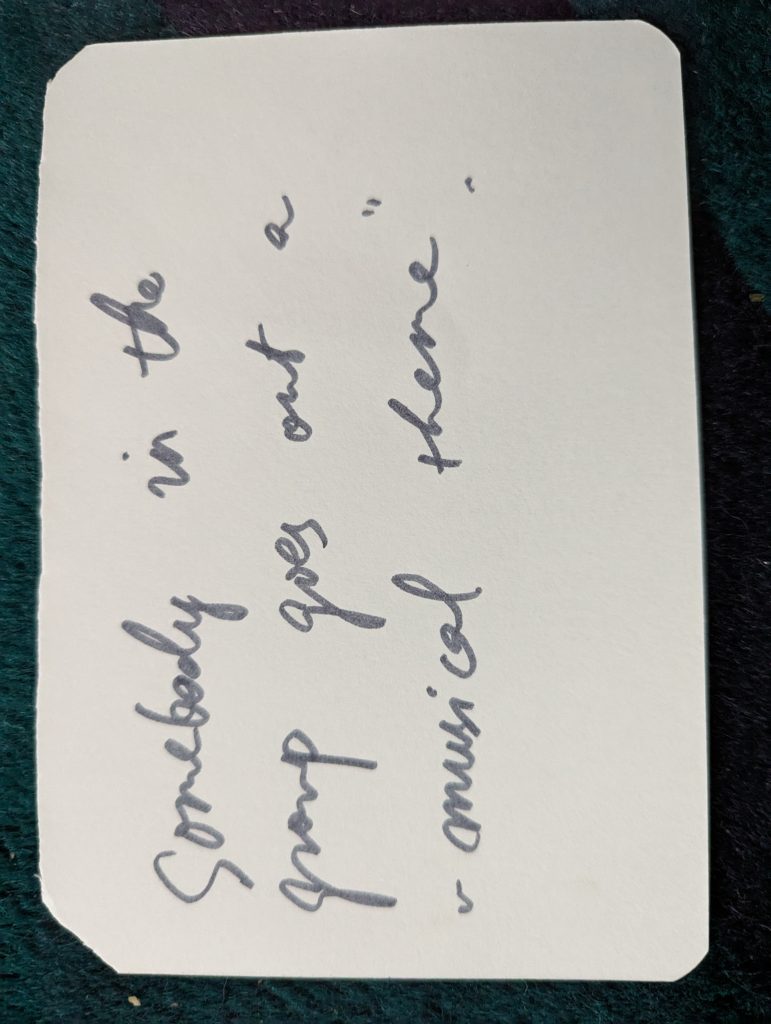 Somebody in the
group goes out a
"musical theme".